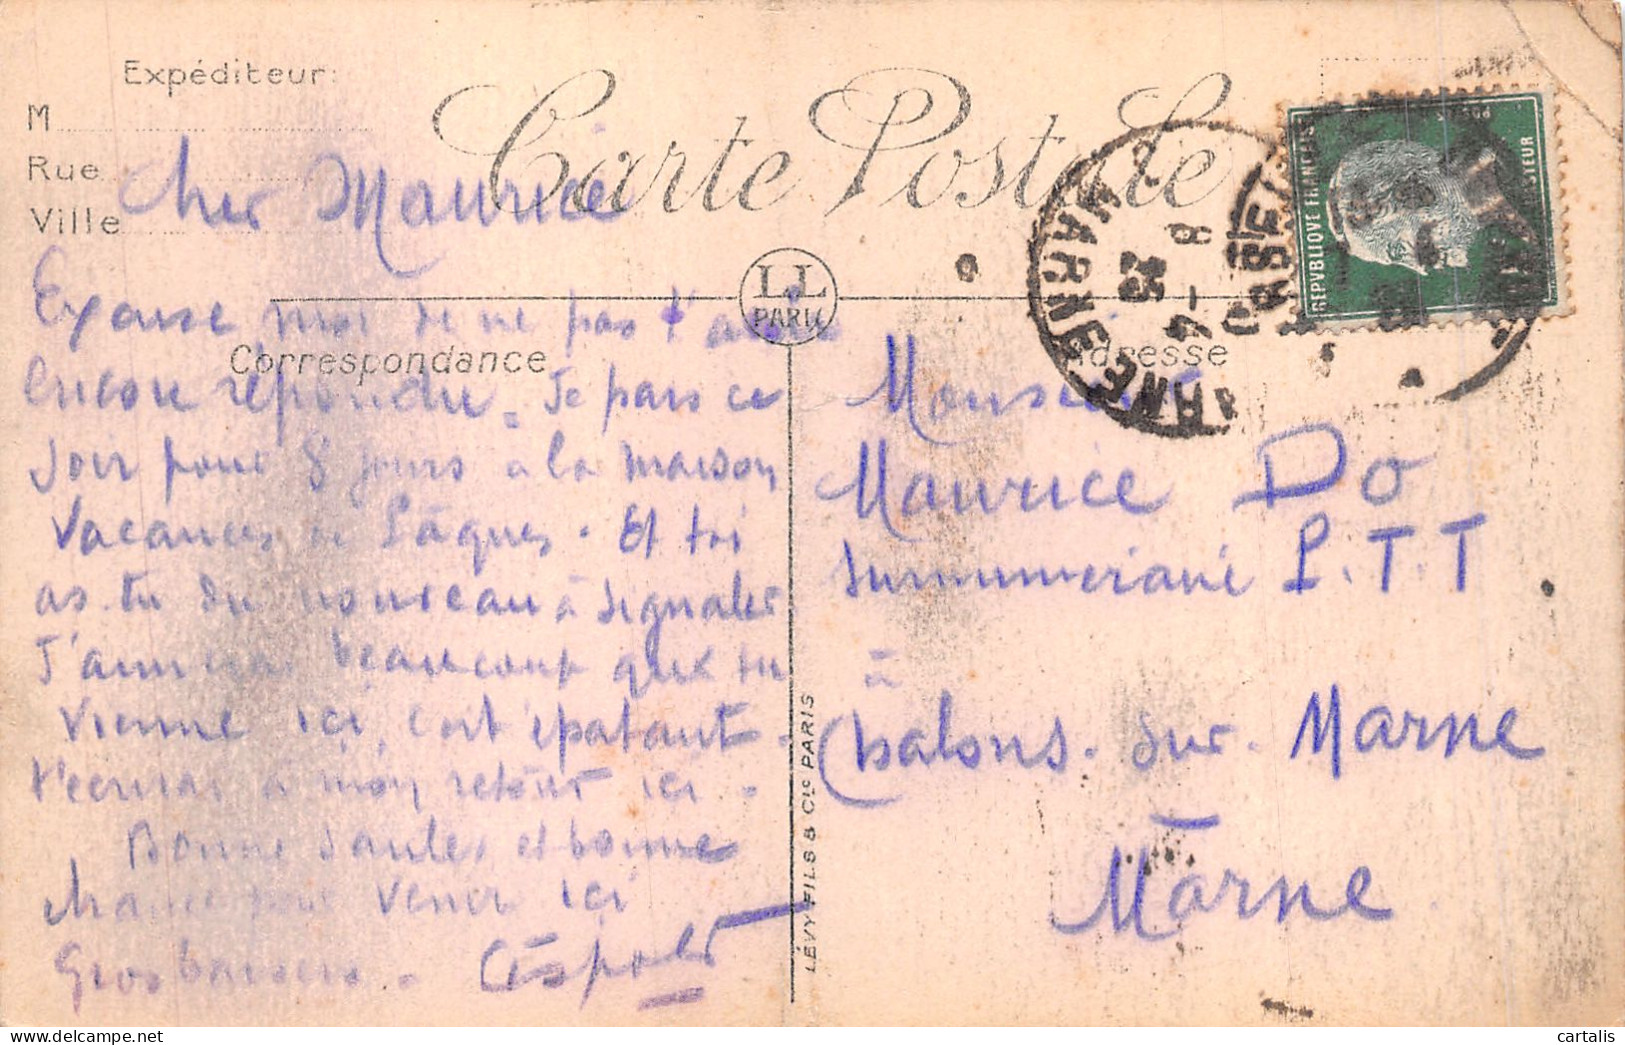 Expéditeur:
M
Rue
Ville
Carte Postale
LL
PARIS
Correspondance
Adresse
Cher Maurice
Excuse moi de ne pas t'avoir
encore répondu. Je pars ce
soir pour 8 jours à la maison
Vacances de Pâques. Et toi
as-tu du nouveau à signaler
J'aimerais beaucoup que tu
vienne ici, c'est épatant.
t'écrirai à mon retour ici.
Bonne santée et bonne
chance pour venir ici
Gros baisers.
Monsieur
Maurice Do
Surnuméraire P.T.T
à
Chalons-sur-Marne
Marne
REPVBLIQVE FRANÇAISE
POSTES
PASTEUR
MARNE
8 - 4
25
LÉVY FILS & Cie PARIS
cartalis